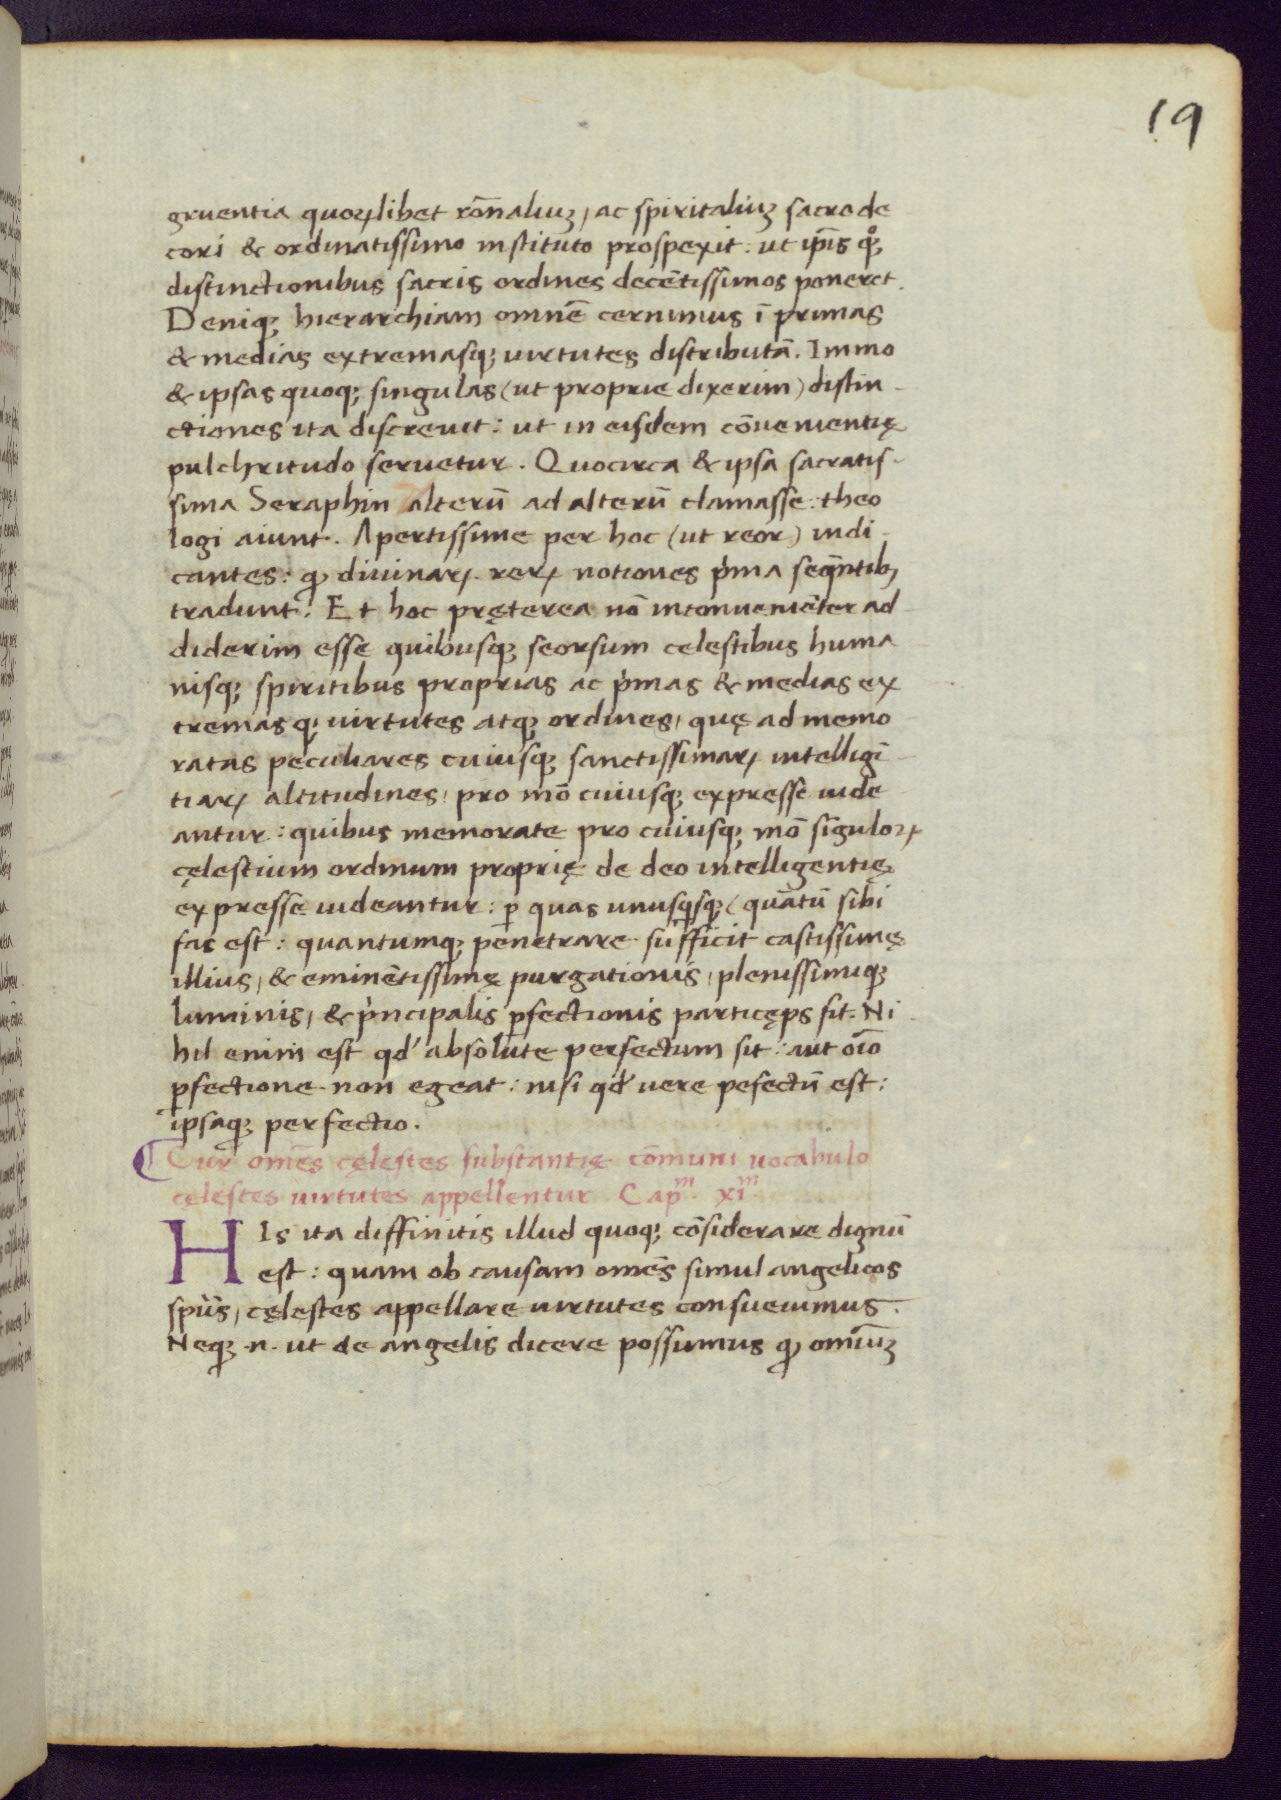 19
gruentia quoꝝlibet rōnaliuꝫ, ac spiritaliuꝫ sacro de
cori & ordinatissimo instituto prospexit: ut ip̄is qͦꝫ
distinctionibus sacris ordines decētissimos poneret.
Deniqꝫ hierarchiam omnē cernimus ī primas
& medias extremasqꝫ uirtutes distributā. Immo
& ipsas quoqꝫ singulas (ut proprie dixerim) distin-
ctiones ita discreuit: ut in eisdem cōuenientię
pulchritudo seruetur. Quocirca & ipsa sacratis-
sima Seraphin alterū ad alterū clamasse: theo
logi aiunt. Apertissime per hoc (ut reor) indi-
cantes: ꝙ diuinaꝝ reꝝ notiones p̍ma seq̄ntibꝫ
tradunt. Et hoc pręterea nō inconueniēter ad
diderim esse quibusqꝫ seorsum celestibus huma
nisqꝫ spiritibus proprias ac p̍mas & medias ex
tremasqꝫ uirtutes atqꝫ ordines, quę ad memo
ratas peculiares cuiusqꝫ sanctissimaꝝ intelligē-
tiaꝝ altitudines, pro mō cuiusqꝫ expresse uide
antur: quibus memorate pro cuiusqꝫ mō sīguloꝝ
cęlestium ordinum proprię de deo intelligentię
expresse uideantur: ꝑ quas unusq̍sqꝫ (quātū sibi
fas est: quantumqꝫ penetrare sufficit castissimę
illius, & eminētissimę purgationis, plenissimiqꝫ
luminis, & p̍ncipalis ꝑfectionis particęps sit. Ni-
hil enim est qd̕ absolute perfectum sit: aut oīo
ꝑfectione non egeat: nisi qd̕ uere pefectū est:
ipsaqꝫ perfectio.
Cur omēs cęlestes substantię cōmuni uocabulo
cęlestes uirtutes appellentur. Capᵐ. xiᵐ.
HIs ita diffinitis illud quoqꝫ cōsiderare dignū
est: quam ob causam omēs simul angelicos
spūs, cęlestes appellare uirtutes consueuimus.
Neqꝫ .n. ut de angelis dicere possumus ꝙ omīuꝫ